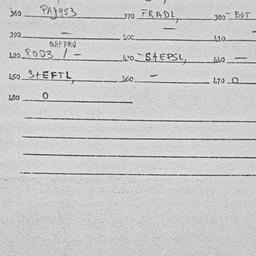 360 PAJ953 370 FRADL, 380 - BUT
390 — 400 — 410 -
420 POD3 / - 430 - S+EPSL, 440 —
450 S+EFTL, 460 - 470 O
480 O